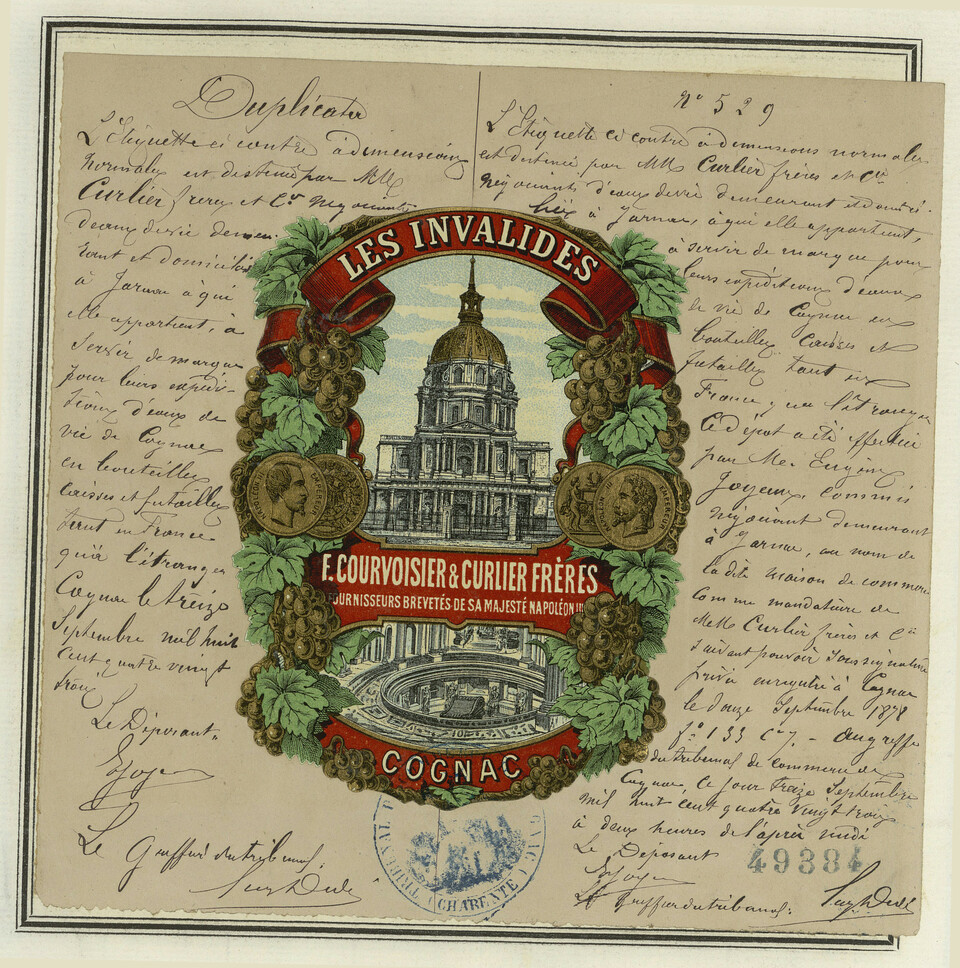 Duplicata
L'Etiquette ci contre à dimensions
normales est destinée par MM
Curlier frères et Cie Négociants
d'eaux de vie demeu-
rant et domiciliés
à Jarnac à qui
elle appartient, à
servir de marque
pour leurs expédi-
tions d'eaux de
vie de Cognac
en bouteilles
caisses et futailles
tant en France
qu'à l'étranger
Cognac le treize
Septembre mil huit
cent quatre vingt
trois
Le Déposant
Le Greffier du tribunal:
No 529
L'Etiquette ci contre à dimensions normales
est destinée par MM Curlier frères et Cie
Négociants d'eaux de vie demeurant et domici-
liés à Jarnac, à qui elle appartient,
à servir de marque pour
leurs expéditions d'eaux
de vie de Cognac en
bouteilles caisses et
futailles tant en
France qu'à l'étranger
Ce dépôt a été effectué
par Mr Eugène
Joyeux commis
négociant demeurant
à Jarnac, au nom de
la dite maison de commerce
comme mandataire de
MM Curlier frères et Cie
suivant pouvoir sous signature
privée enregistré à Cognac
le douze Septembre 1878
fo 133 Ce 7. - au greffe
du tribunal de commerce de
Cognac, ce jour treize Septembre
mil huit cent quatre vingt trois
à deux heures de l'après midi
Le Déposant
Le Greffier du tribunal:
LES INVALIDES
F. COURVOISIER & CURLIER FRÈRES
FOURNISSEURS BREVETÉS DE SA MAJESTÉ NAPOLÉON III
COGNAC
TRIBUNAL
(CHARENTE)
49384